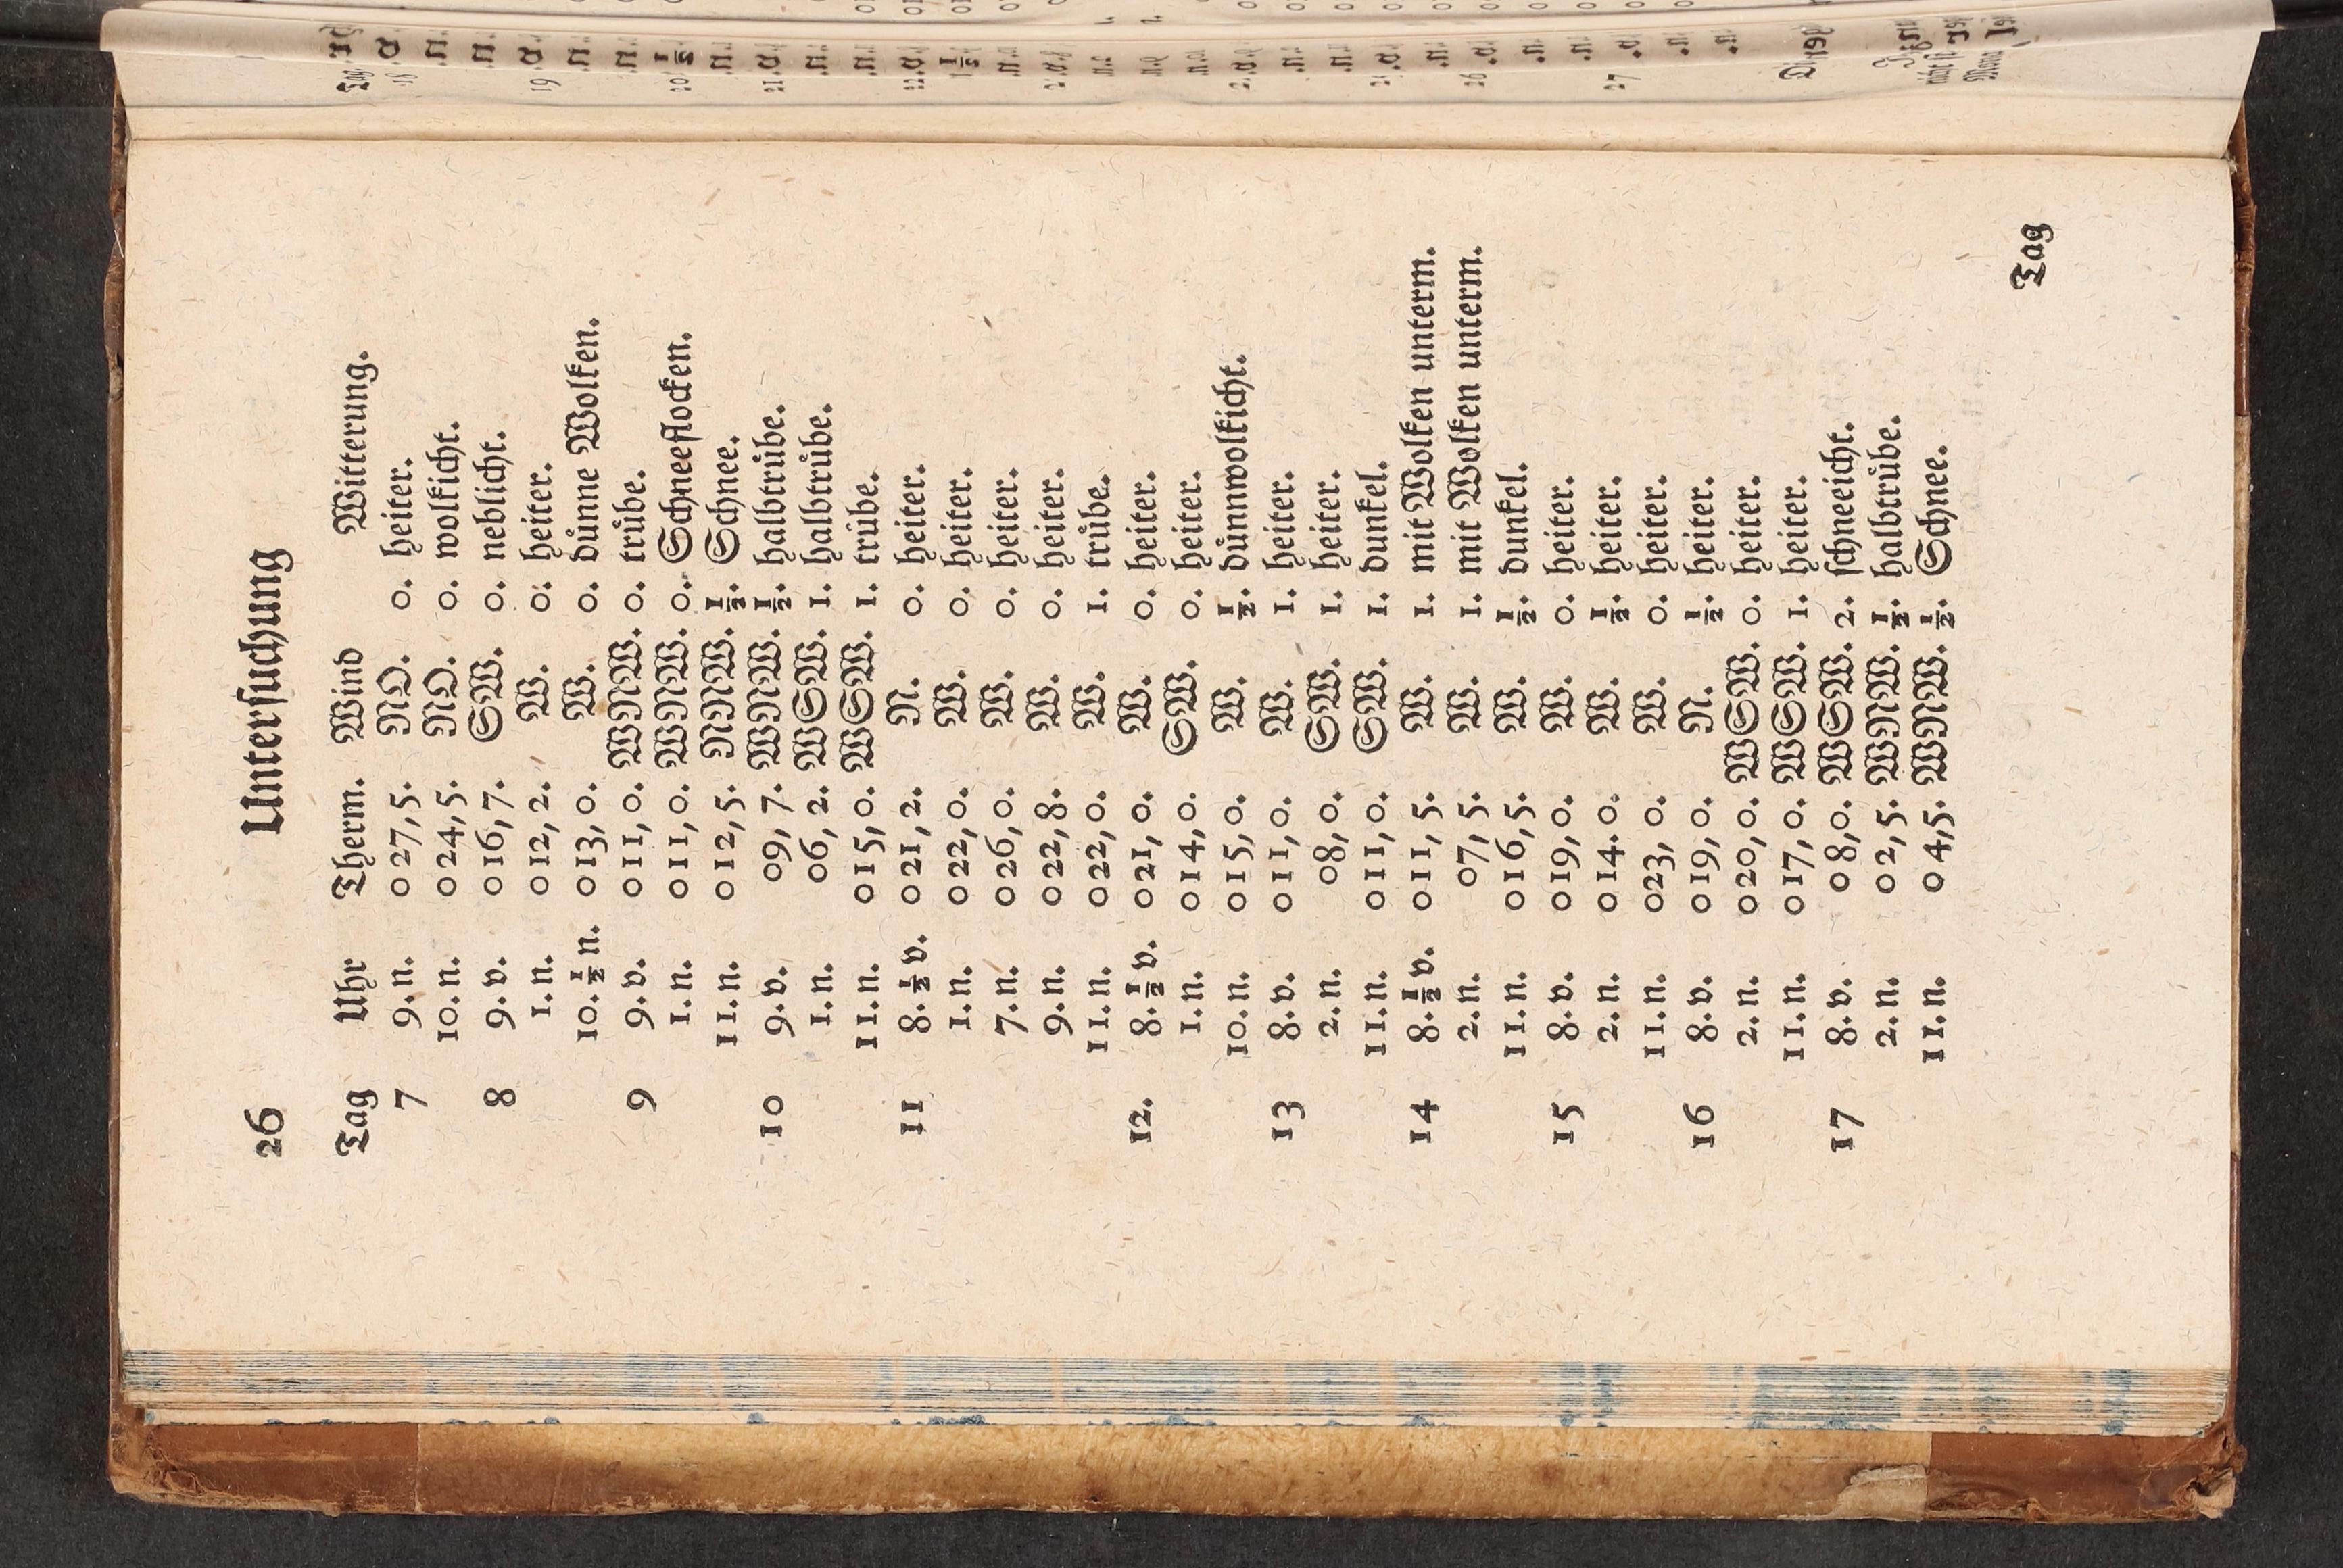 26 Untersuchung
Tag Uhr Therm. Wind Witterung.
7 9. n. 0 27, 5. NO. 0. heiter.
10. n. 0 24, 5. NO. 0. wolkicht.
8 9. v. 0 16, 7. SW. 0. neblicht.
1. n. 0 12, 2. W. 0. heiter.
10. ½ n. 0 13, 0. W. 0. duͤnne Wolken.
9 9. v. 0 11, 0. WNW. 0. truͤbe.
1. n. 0 11, 0. WNW. 0. Schneeflocken.
11. n. 0 12, 5. NNW. ½. Schnee.
10 9. v. 09, 7. WNW. ½. halbtruͤbe.
1. n. 06, 2. WSW. 1. halbtruͤbe.
11. n. 0 15, 0. WSW. 1. truͤbe.
11 8. ½ v. 0 21, 2. N. 0. heiter.
1. n. 0 22, 0. W. 0. heiter.
7. n. 0 26, 0. W. 0. heiter.
9. n. 0 22, 8. W. 0. heiter.
11. n. 0 22, 0. W. 1. truͤbe.
12. 8. ½ v. 0 21, 0. W. 0. heiter.
1. n. 0 14, 0. SW. 0. heiter.
10. n. 0 15, 0. W. ½. duͤnnwolkicht.
13 8. v. 0 11, 0. W. 1. heiter.
2. n. 08, 0. SW. 1. heiter.
11. n. 0 11, 0. SW. 1. dunkel.
14 8. ½ v. 0 11, 5. W. 1. mit Wolken unterm.
2. n. 07, 5. W. 1. mit Wolken unterm.
11. n. 0 16, 5. W. ½. dunkel.
15 8. v. 0 19, 0. W. 0. heiter.
2. n. 0 14. 0. W. ½. heiter.
11. n. 0 23, 0. W. 0. heiter.
16 8. v. 0 19, 0. N. ½. heiter.
2. n. 0 20, 0. WSW. 0. heiter.
11. n. 0 17, 0. WSW. 1. heiter.
17 8. v. 0 8, 0. WSW. 2. schneeicht.
2. n. 0 2, 5. WNW. ½. halbtruͤbe.
11. n. 0 4, 5. WNW. ½. Schnee.
Tag